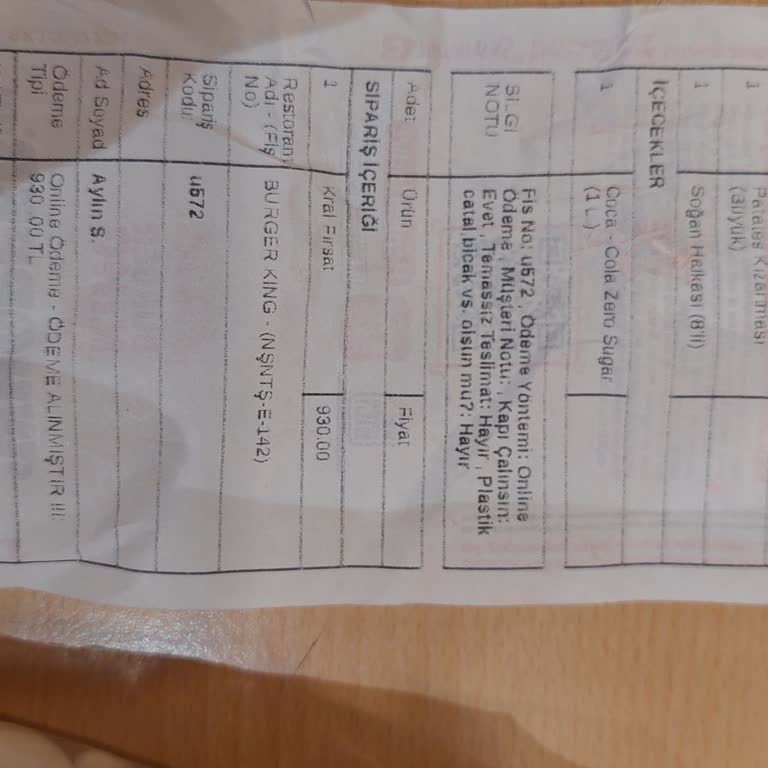 1 Patates Kızartması
(Büyük)
1 Soğan Halkası (8'li)
İÇECEKLER
1 Coca-Cola Zero Sugar
(1 L)
BİLGİ
NOTU
Fiş No: u572 , Ödeme Yöntemi: Online
Ödeme , Müşteri Notu: , Kapı Çalınsın:
Evet , Temassız Teslimat: Hayır , Plastik
catal,bicak vs. olsun mu?: Hayır
Adet Ürün Fiyat
SİPARİŞ İÇERİĞİ
1 Kral Fırsat 930.00
Restoran
Adı - (Fiş
No)
BURGER KING - (NŞNTŞ-E-142)
Sipariş
Kodu
u572
Adres
Ad Soyad Aylin Ş.
Ödeme
Tipi
Online Ödeme - ÖDEME ALINMIŞTIR !!!:
930.00TL